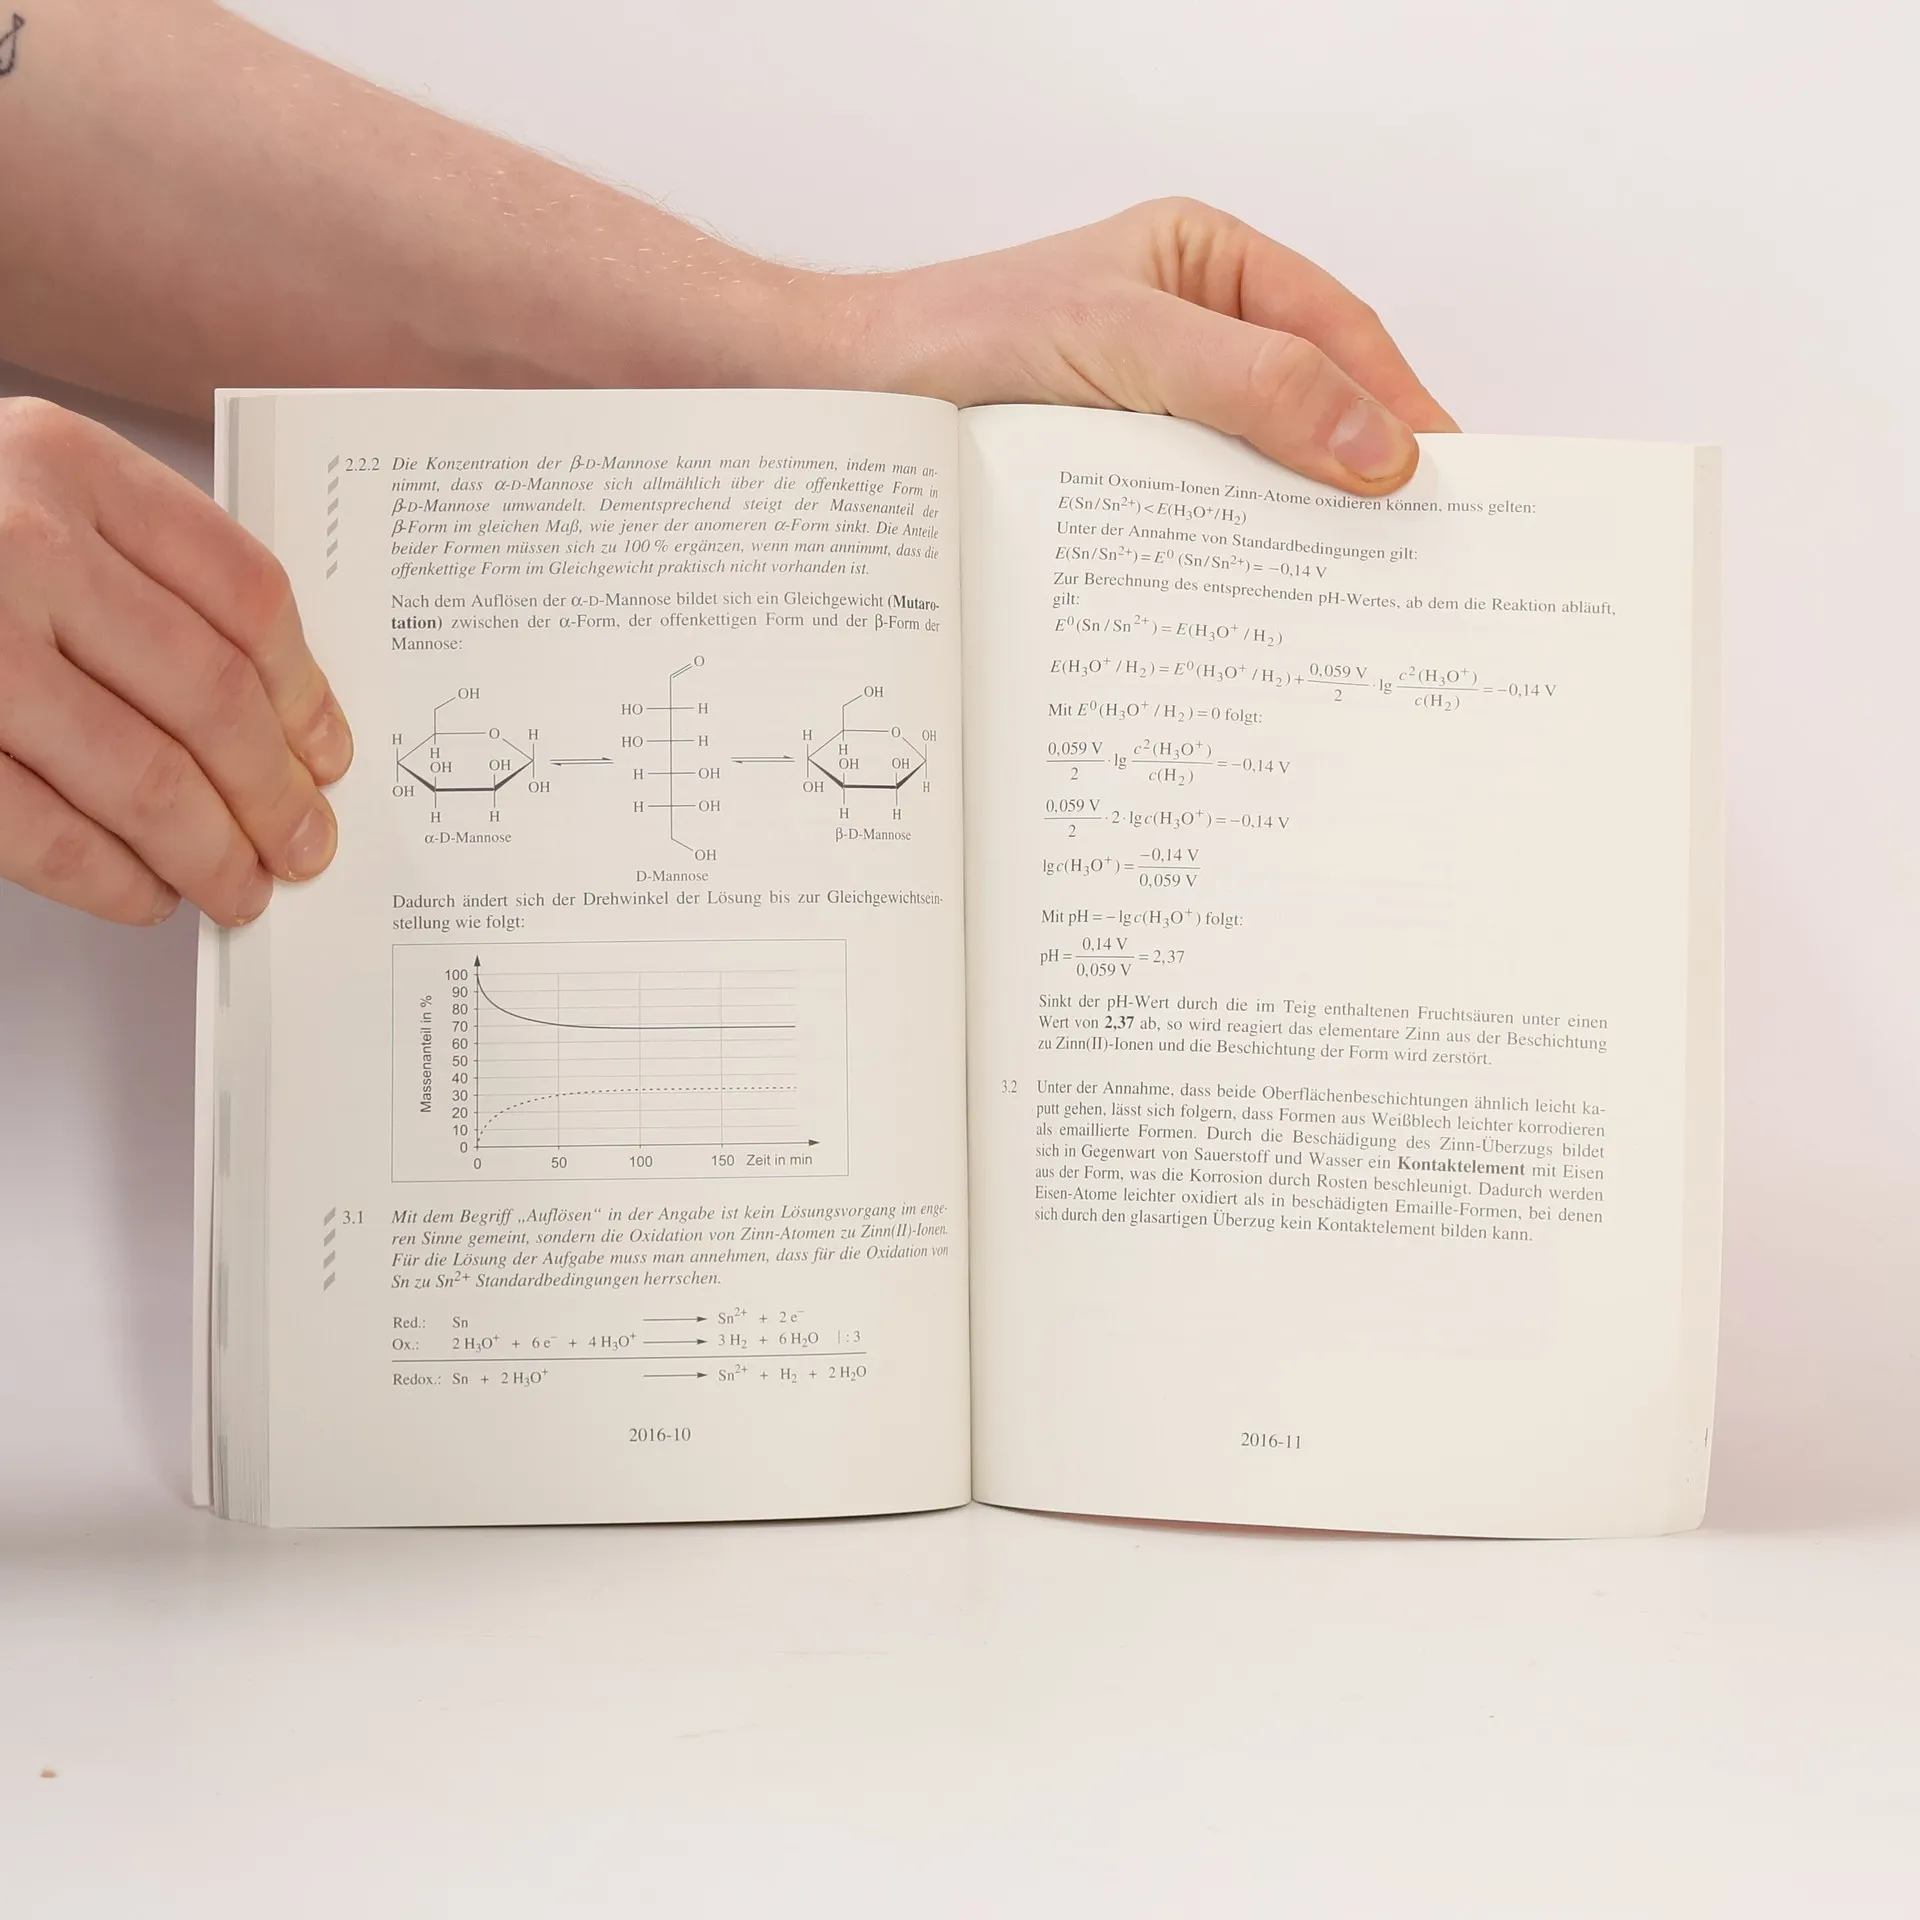 2.2.2 Die Konzentration der β-D-Mannose kann man bestimmen, indem man an-
nimmt, dass α-D-Mannose sich allmählich über die offenkettige Form in
β-D-Mannose umwandelt. Dementsprechend steigt der Massenanteil der
β-Form im gleichen Maß, wie jener der anomeren α-Form sinkt. Die Anteile
beider Formen müssen sich zu 100 % ergänzen, wenn man annimmt, dass die
offenkettige Form im Gleichgewicht praktisch nicht vorhanden ist.
Nach dem Auflösen der α-D-Mannose bildet sich ein Gleichgewicht (Mutaro-
tation) zwischen der α-Form, der offenkettigen Form und der β-Form der
Mannose:
O
OH OH
HO H
H O H H O OH
HO H
H H
OH OH OH OH
H OH
OH OH OH H
H OH
H H H H
α-D-Mannose β-D-Mannose
OH
D-Mannose
Dadurch ändert sich der Drehwinkel der Lösung bis zur Gleichgewichtsein-
stellung wie folgt:
Massenanteil in %
100
90
80
70
60
50
40
30
20
10
0
0 50 100 150 Zeit in min
3.1 Mit dem Begriff „Auflösen“ in der Angabe ist kein Lösungsvorgang im enge-
ren Sinne gemeint, sondern die Oxidation von Zinn-Atomen zu Zinn(II)-Ionen.
Für die Lösung der Aufgabe muss man annehmen, dass für die Oxidation von
Sn zu Sn²⁺ Standardbedingungen herrschen.
Red.: Sn ⟶ Sn²⁺ + 2 e⁻
Ox.: 2 H₃O⁺ + 6 e⁻ + 4 H₃O⁺ ⟶ 3 H₂ + 6 H₂O | : 3
Redox.: Sn + 2 H₃O⁺ ⟶ Sn²⁺ + H₂ + 2 H₂O
2016-10
Damit Oxonium-Ionen Zinn-Atome oxidieren können, muss gelten:
E(Sn/Sn²⁺) < E(H₃O⁺/H₂)
Unter der Annahme von Standardbedingungen gilt:
E(Sn/Sn²⁺) = E⁰ (Sn/Sn²⁺) = −0,14 V
Zur Berechnung des entsprechenden pH-Wertes, ab dem die Reaktion abläuft,
gilt:
E⁰(Sn / Sn²⁺) = E(H₃O⁺ / H₂)
E(H₃O⁺ / H₂) = E⁰(H₃O⁺ / H₂) + 0,059 V / 2 · lg c²(H₃O⁺) / c(H₂) = −0,14 V
Mit E⁰(H₃O⁺ / H₂) = 0 folgt:
0,059 V / 2 · lg c²(H₃O⁺) / c(H₂) = −0,14 V
0,059 V / 2 · 2 · lg c(H₃O⁺) = −0,14 V
lg c(H₃O⁺) = −0,14 V / 0,059 V
Mit pH = − lg c(H₃O⁺) folgt:
pH = 0,14 V / 0,059 V = 2,37
Sinkt der pH-Wert durch die im Teig enthaltenen Fruchtsäuren unter einen
Wert von 2,37 ab, so wird reagiert das elementare Zinn aus der Beschichtung
zu Zinn(II)-Ionen und die Beschichtung der Form wird zerstört.
3.2 Unter der Annahme, dass beide Oberflächenbeschichtungen ähnlich leicht ka-
putt gehen, lässt sich folgern, dass Formen aus Weißblech leichter korrodieren
als emaillierte Formen. Durch die Beschädigung des Zinn-Überzugs bildet
sich in Gegenwart von Sauerstoff und Wasser ein Kontaktelement mit Eisen
aus der Form, was die Korrosion durch Rosten beschleunigt. Dadurch werden
Eisen-Atome leichter oxidiert als in beschädigten Emaille-Formen, bei denen
sich durch den glasartigen Überzug kein Kontaktelement bilden kann.
2016-11